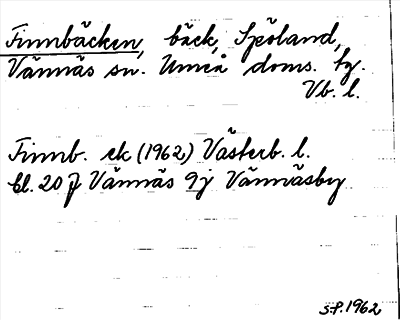 Finnbäcken, bäck, Spöland,
Vännäs sn. Umeå doms. tg.
Vb. l.
Finnb. ek (1962) Västerb. l.
bl. 20 J Vännäs 9j Vännäsby
S.P. 1962